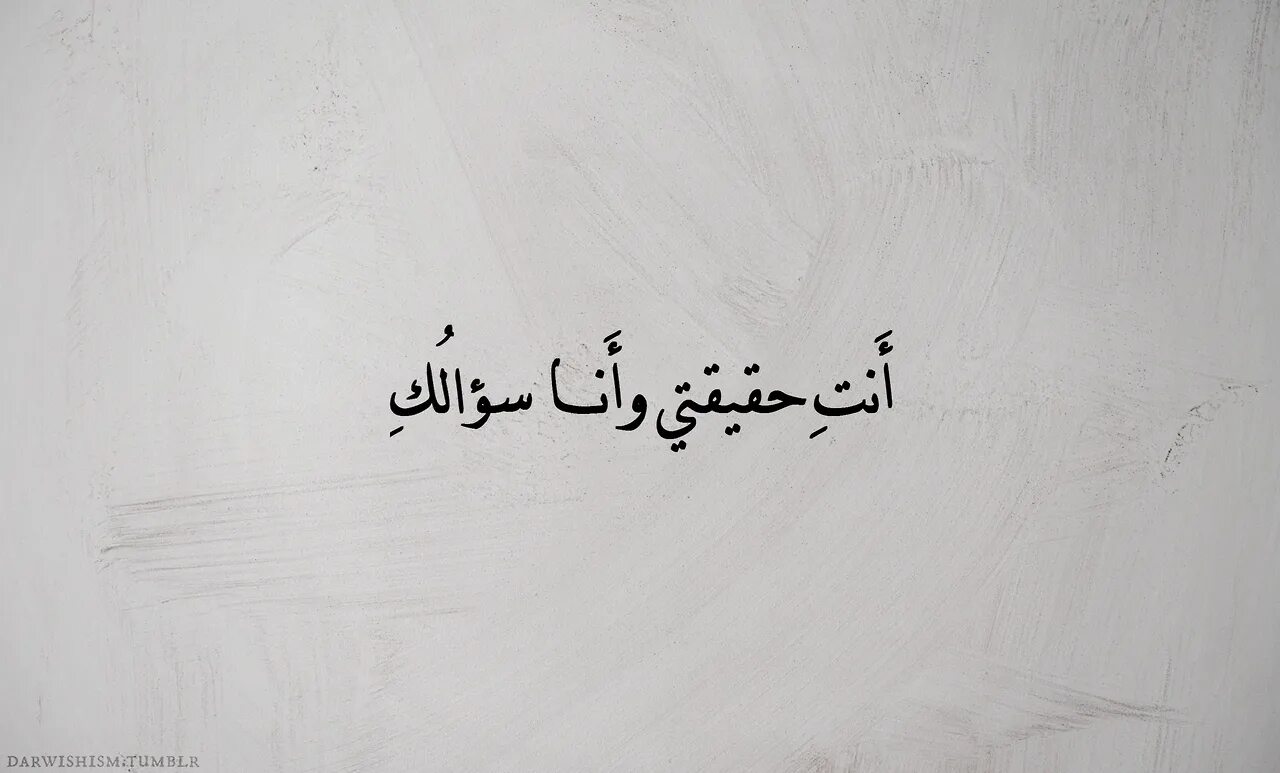 أَنتِ حقيقتي وأَنا سؤالُكِ
DARWISHISM:TUMBLR